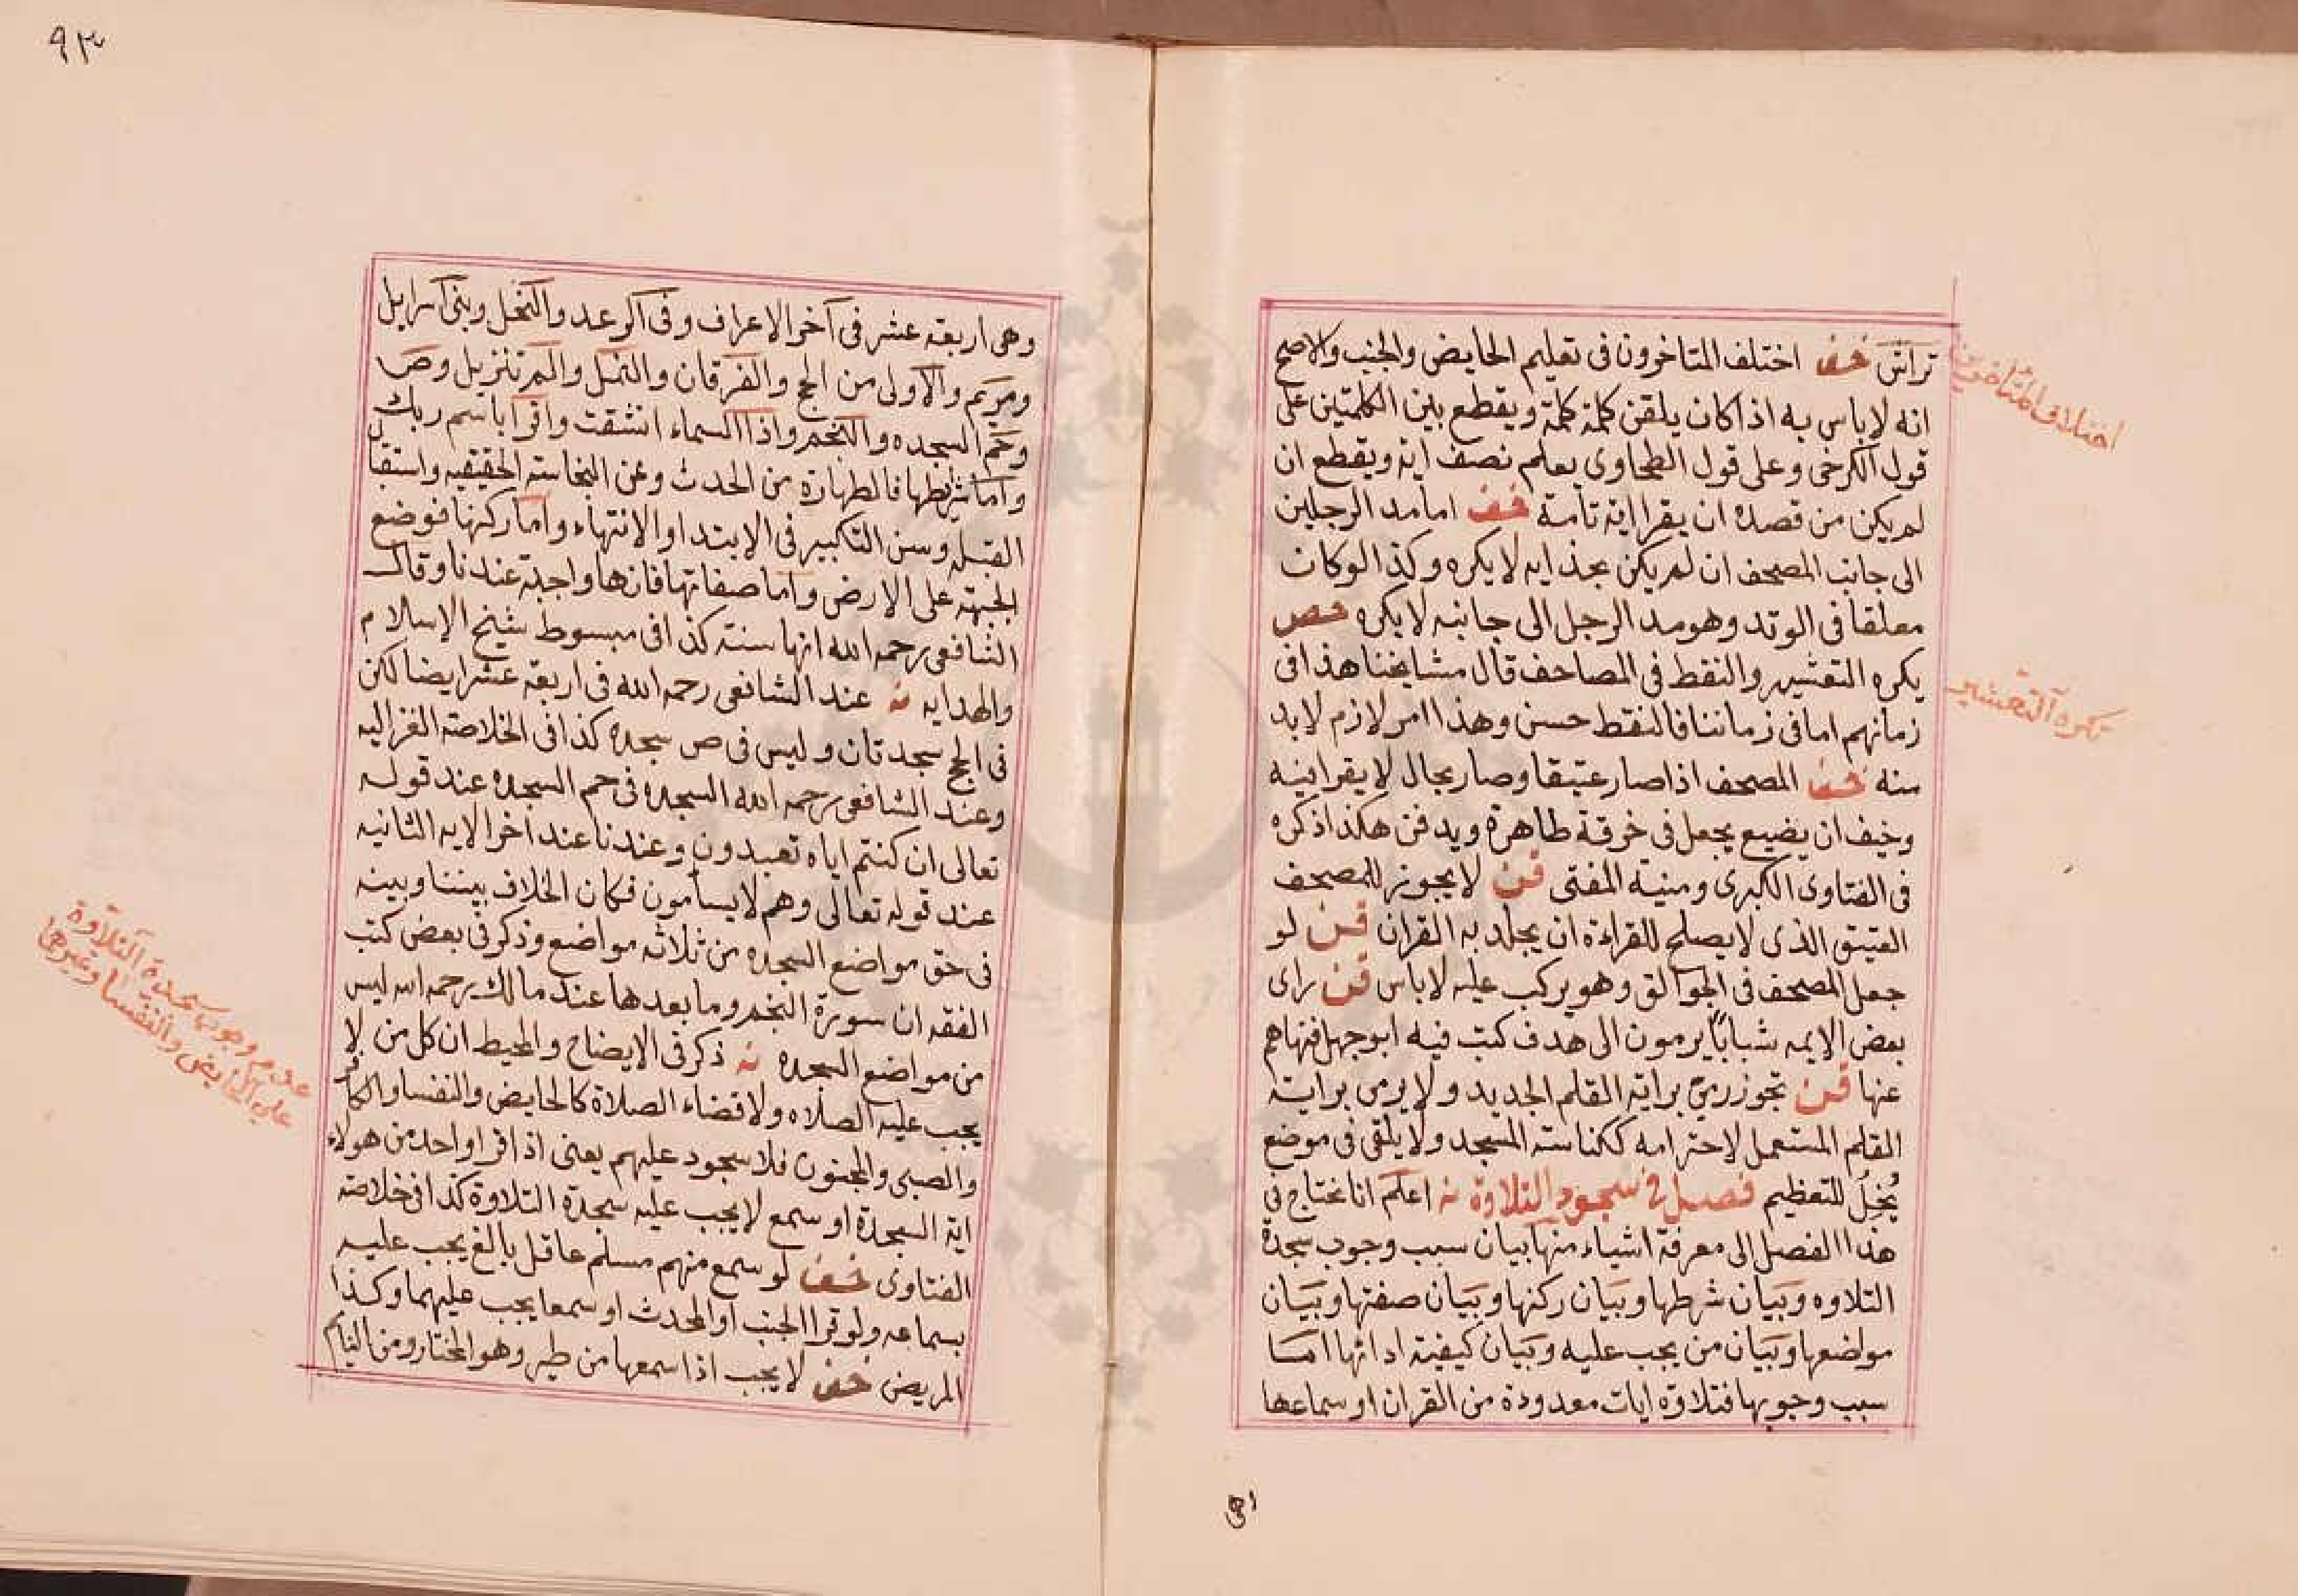 تراتس خف اختلف المتاخرون فى تعليم الحايض والجنب والاصح
انه لاباس به اذا كان يلقن كلمة كلمة ويقطع بين الكلمتين على
قول الكرخى وعلى قول الطحاوى يعلم نصف اية ويقطع ان
لم يكن من قصده ان يقرا اية تامة خف اما مد الرجلين
الى جانب المصحف ان لم يكن بحذايه لا يكره وكذا لوكان
معلقا فى الوتد وهو مد الرجل الى جانبه لا يكره خص
يكره التعشير والنقط فى المصاحف قال مشايخنا هذا فى
زمانهم اما فى زماننا فالنقط حسن وهذا امر لازم لابد
منه خف المصحف اذا صار عتيقا وصار بحال لا يقرا فيه
وخيف ان يضيع يجعل فى خرقة طاهرة ويدفن هكذا ذكره
فى الفتاوى الكبرى ومنية المفتى قن لا يجوز للمصحف
العتيق الذى لا يصلح للقراءة ان يجلد به القران قن لو
جعل المصحف فى الجوالق وهو يركب عليه لاباس قن راى
بعض الايمه شبابا يرمون الى هدف كتب فيه ابوجهل فنهاهم
عنها قن تجوز رمى براية القلم الجديد ولا يرمى براية
القلم المستعمل لاحترامه ككناسة المسجد ولا يلقى فى موضع
يخل للتعظيم فصل فى سجود التلاوة نه اعلم انا نحتاج فى
هذا الفصل الى معرفة اشياء منها بيان سبب وجوب سجدة
التلاوه وبيان شرطها وبيان ركنها وبيان صفتها وبيان
مواضعها وبيان من يجب عليه وبيان كيفية ادائها اما
سبب وجوبها فتلاوة ايات معدودة من القران او سماعها
اختلاف المتاخرين
تكره التعشير
٩٣
وهى اربعة عشر فى آخر الاعراف وفى الرعد والنحل وبنى اسرايل
ومريم والاولى من الحج والفرقان والنمل والم تنزيل وص
وحم السجده والنجم واذا السماء انشقت واقرا باسم ربك
واما شرايطها فالطهارة من الحدث وعن النجاسة الحقيقيه واستقبال
القبله وسن التكبير فى الابتدا والانتهاء واما ركنها فوضع
الجبهة على الارض واما صفاتها فانها واجبة عندنا وقال
الشافعى رحمه الله انها سنة كذا فى مبسوط شيخ الاسلام
والهدايه نه عند الشافعى رحمه الله فى اربعة عشر ايضا لكن
فى الحج سجدتان وليس فى ص سجده كذا فى الخلاصة الغزاليه
وعند الشافعى رحمه الله السجده فى حم السجده عند قوله
تعالى ان كنتم اياه تعبدون وعندنا عند اخر الايه الثانيه
عند قوله تعالى وهم لا يسامون فكان الخلاف بيننا وبينه
فى حق مواضع السجده من ثلاثه مواضع وذكر فى بعض كتب
الفقه ان سورة النجم وما بعدها عند مالك رحمه الله ليس
من مواضع السجده نه ذكر فى الايضاح والمحيط ان كل من لا
يجب عليه الصلاه ولا قضاء الصلاة كالحايض والنفسا والكافر
والصبى والمجنون فلا سجود عليهم يعنى اذا قرا واحد من هولاء
اية السجدة او سمع لا يجب عليه سجدة التلاوة كذا فى خلاصة
الفتاوى خف لو سمع منهم مسلم عاقل بالغ يجب عليه
بسماعه ولو قرا الجنب او المحدث او سمعا يجب عليهما وكذا
المريض خف لا يجب اذا سمعها من طير وهو المختار ومن النايم
عدم وجوب سجدة التلاوة
على الحايض والنفسا وغيرها